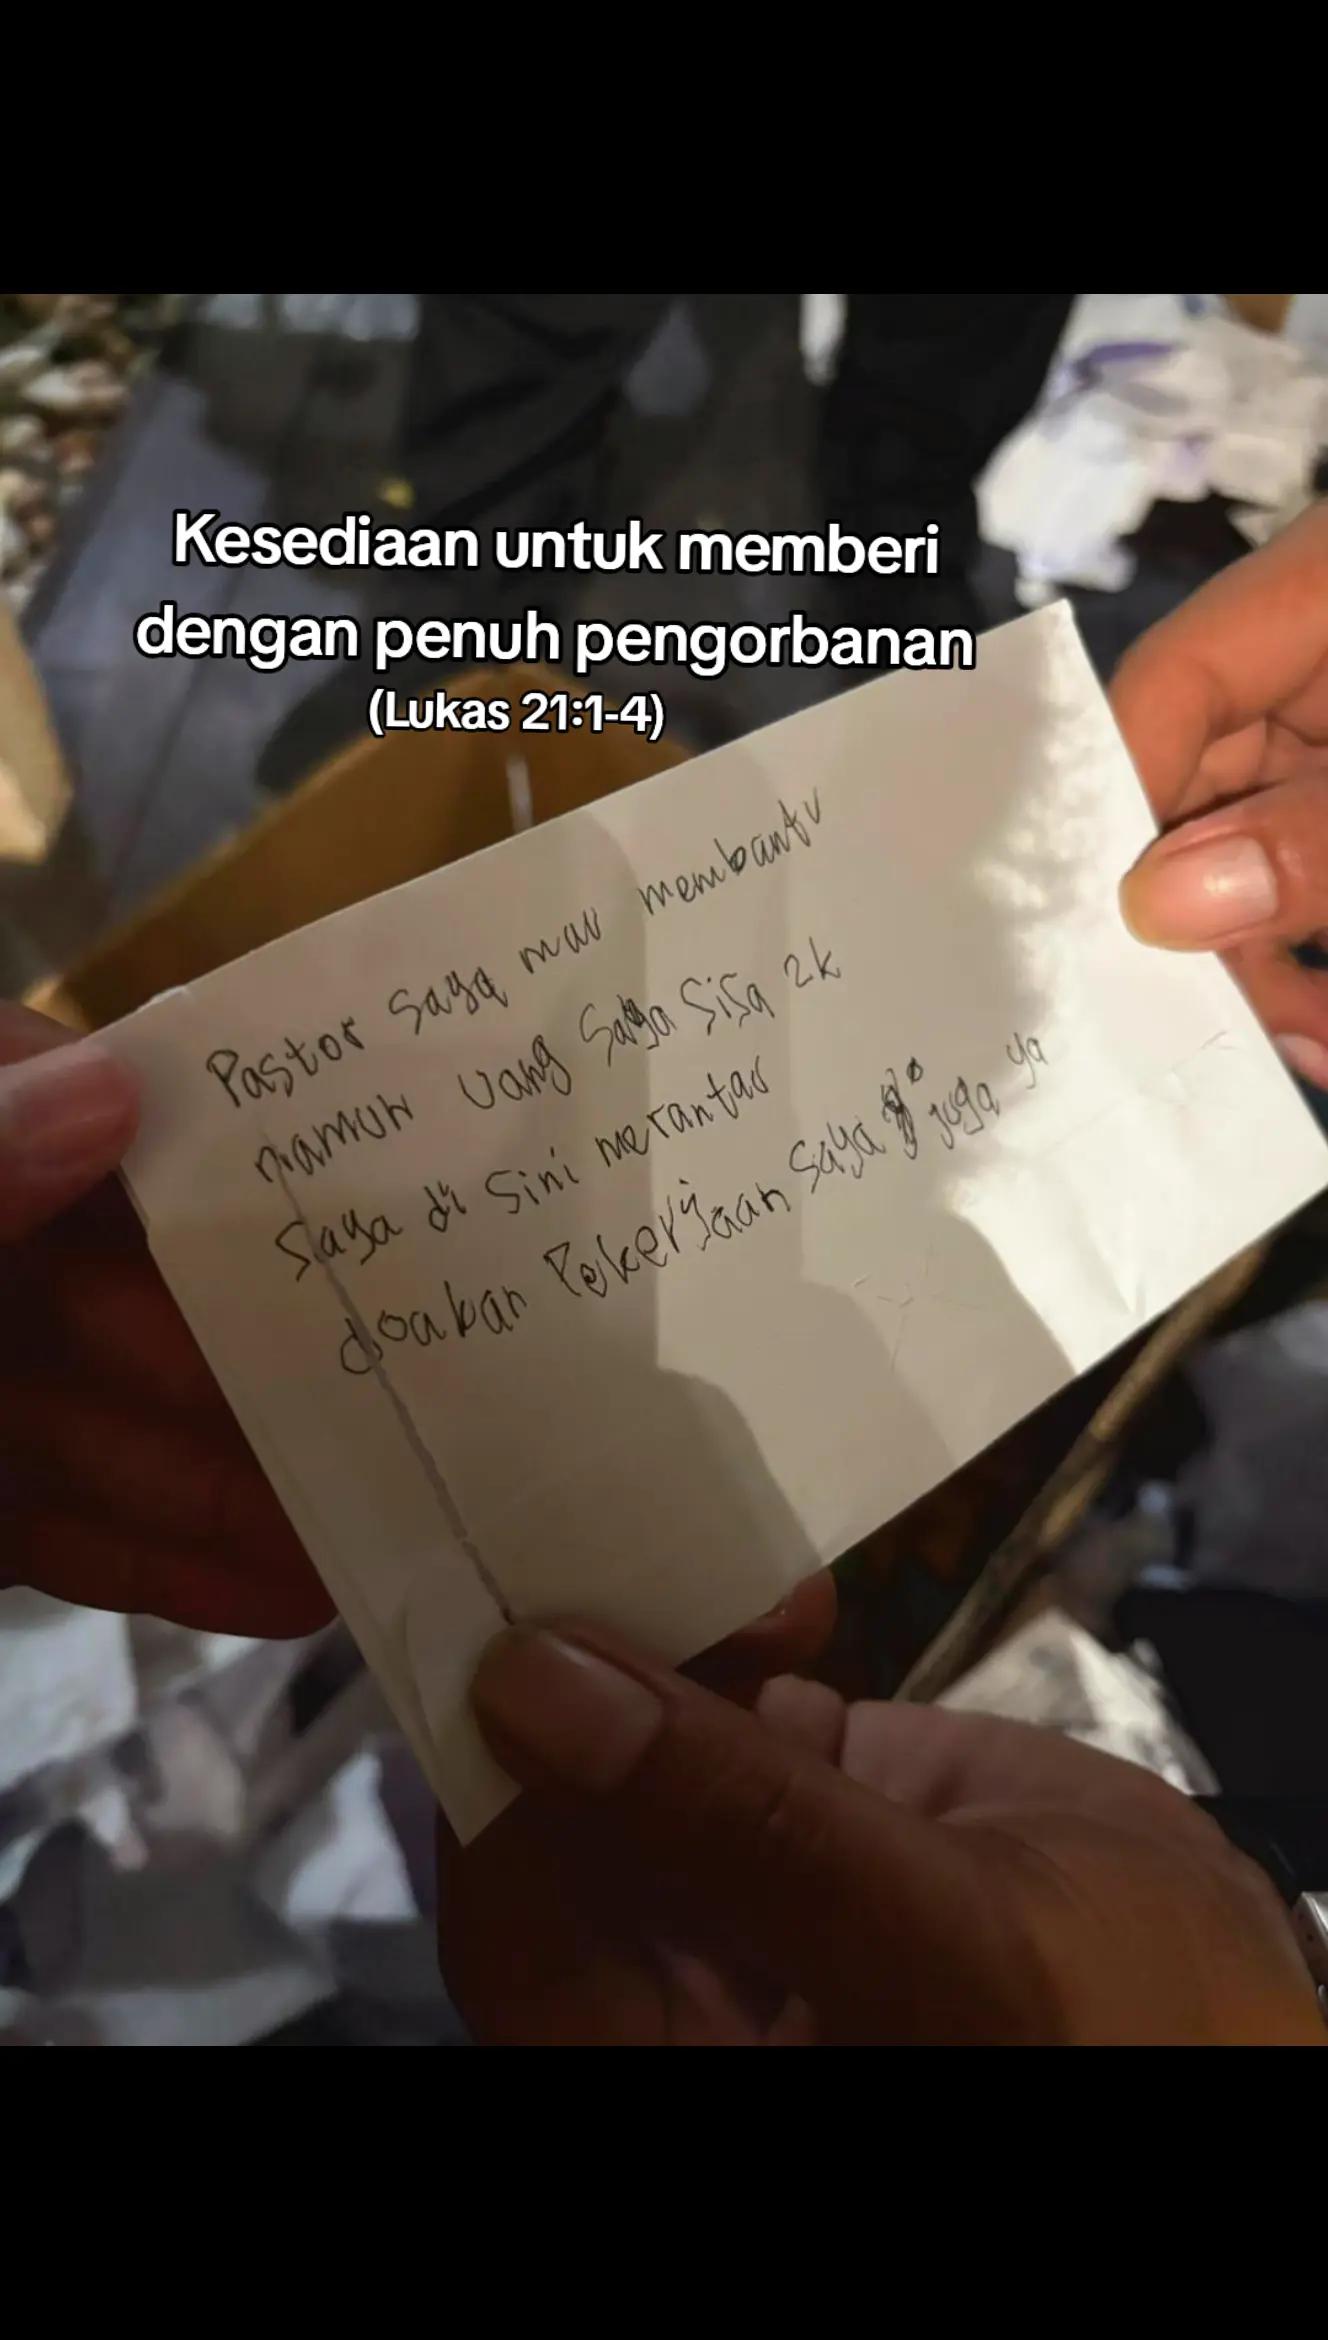 Kesediaan untuk memberi
dengan penuh pengorbanan
(Lukas 21:1-4)
Pastor saya mau membantu
namun uang saya sisa 2k
saya di sini merantau
doakan Pekerjaan saya juga ya